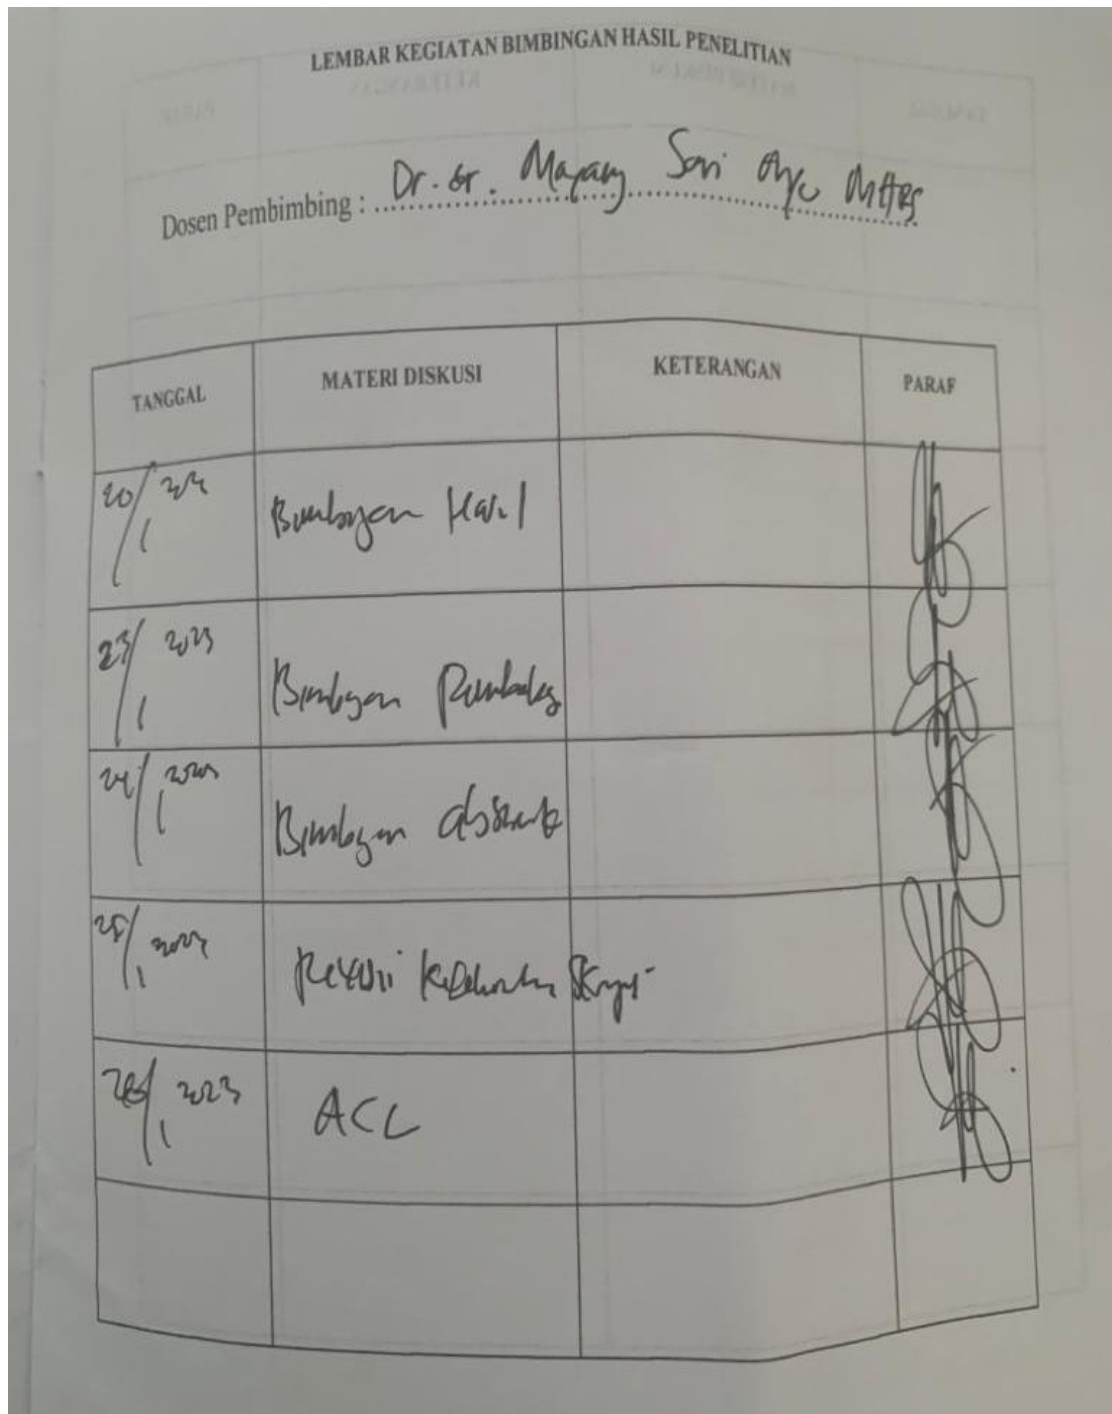 LEMBAR KEGIATAN BIMBINGAN HASIL PENELITIAN
Dosen Pembimbing : Dr. dr. Mayang Sari Ayu
TANGGAL MATERI DISKUSI KETERANGAN PARAF
20/1 Bimbingan Hasil
23/1 2023 Bimbingan
24/1 2023 Bimbingan abstrak
25/1 2023 Revisi Skripsi
26/1 2023 ACC